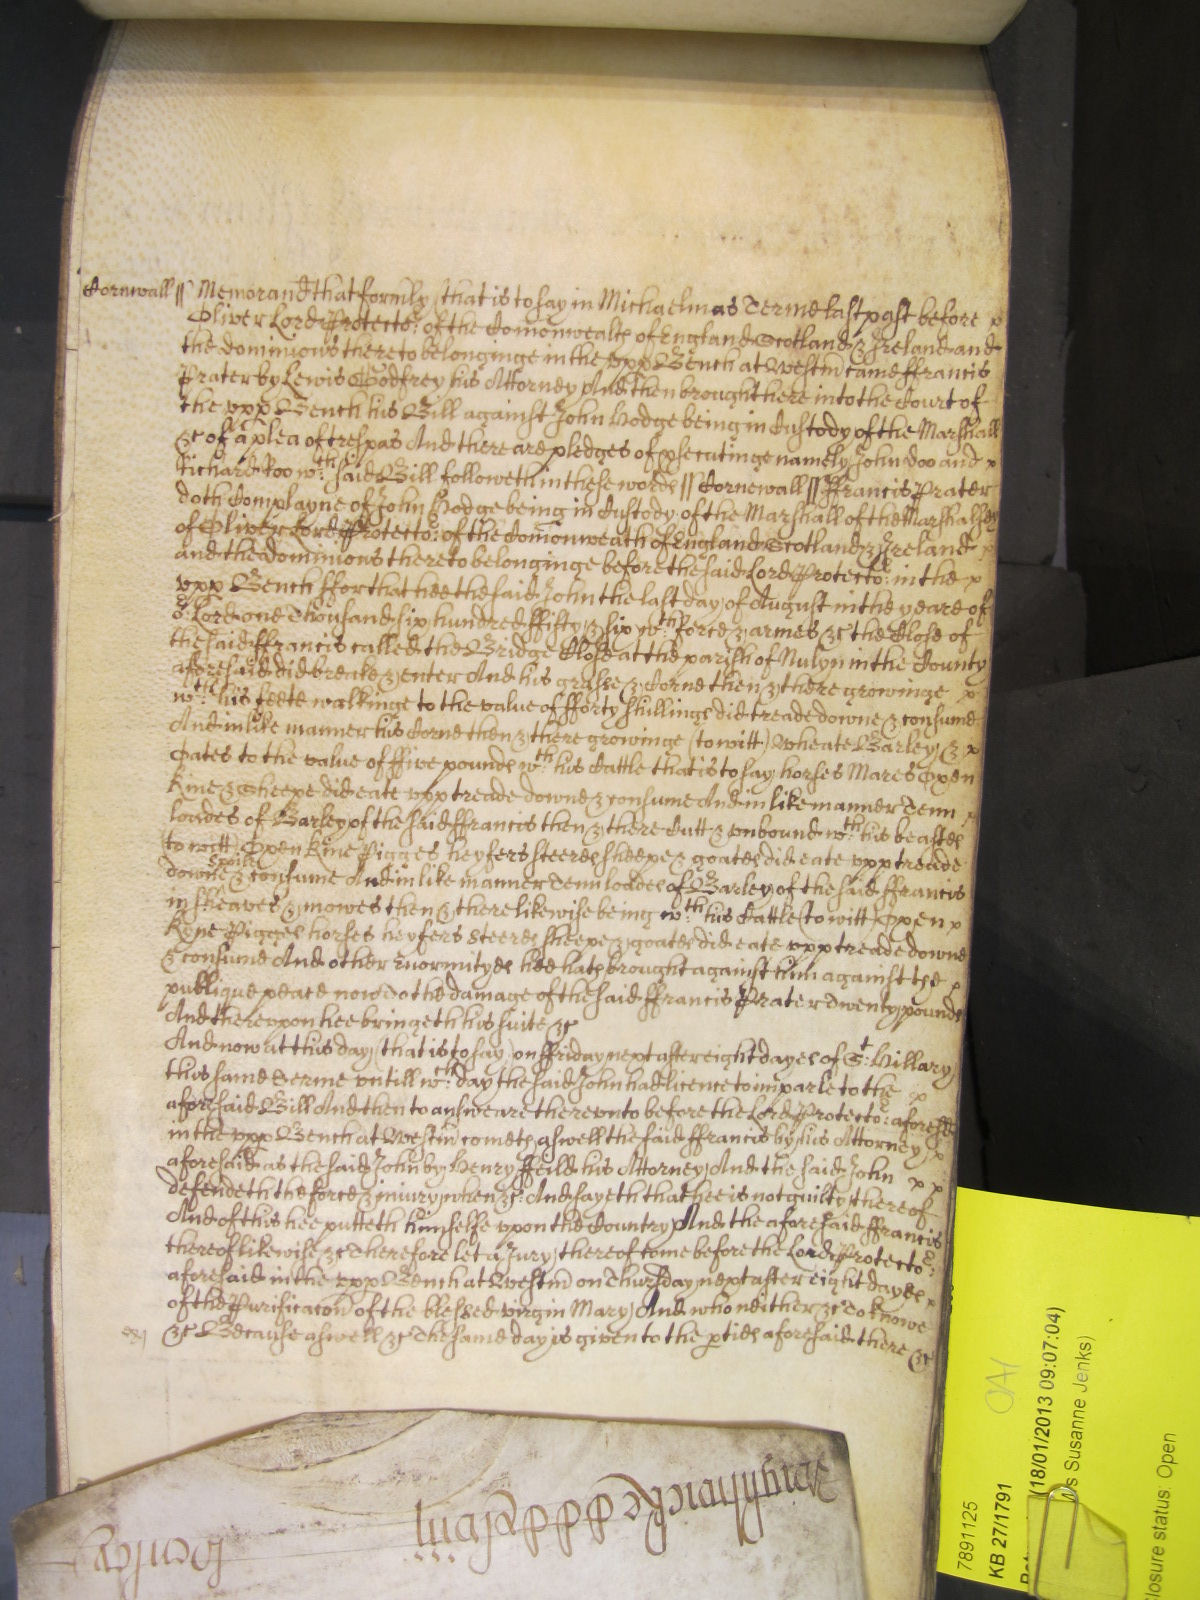 Cornwall // Memorand that formily (that is to say in Michaelmas Terme last past before x
Oliver Lord Protector of the Comonwealth of England Scotland & Ireland and
the dominions thereto belonginge in the upp Bench at Westm came ffrancis
Prater by Lewis Godfrey his Attorney And then brought here into the Court of
the upp Bench his Bill against John Hodge being in Custody of the Marshall
&c of a plea of trespas And there are pledges of psecutinge namely John Doo and x
Richard Roo wch said Bill followeth in these words // Cornewall // ffrancis Prater
doth Complayne of John Hodge being in Custody of the Marshall of the Marshalsey
of Oliver Lord Protector of the Comonweath of England Scotland & Ireland x
and the dominions thereto belonginge before the said Lord Protector in the x
upp Bench ffor that hee the said John the last day of August in the yeare of
or Lord one Thousand six hundred ffifty & six wth force & armes &c the Close of
the said ffrancis called the Bridge Close at the parish of Nulyn in the County
aforesaid did breake & enter And his grasse & Corne then & there growinge x
wth his feete walkinge to the value of fforty shillings did treade downe & consume
And in like manner his Corne then & there growinge (to witt) Wheate Barley & x
Oates to the value of ffive pounds wth his Cattle that is to say horses Mares Oxen
Kine & Sheepe did eate upp treade downe & consume And in like manner Tenn x
loades of Barley of the said ffrancis then & there Cutt & unbound wth his beastes
to witt Oxen Kine Pigges heyfers steeres sheepe & goates did eate upp treade
downe spoile & consume And in like manner Tenn loades of Barley of the said ffrancis
in sheaves & mowes then & there likewise being wth his Cattle (to witt) Oxen x
Kyne Pigges horses heyfers steeres sheepe & goates did eate upp treade downe
& consume And other Enormityes hee hath brought against him against the x
publique peace now to the damage of the said ffrancis Prater Twenty pounds
And thereupon hee bringeth his suite &c
And now at this day (that is to say) on ffriday next after eight dayes of St Hillary
this same Terme untill wch day the said John had licence to imparle to the x
aforesaid Bill And then to answeare thereunto before the Lord Protector aforesd
in the upp Bench at Westm cometh aswell the said ffrancis by his Attorney x
aforesaid as the said John by Henry ffeild his Attorney And the said John x x
defendeth the force & injury when &c And sayeth that hee is not guilty thereof
And of this hee putteth himselfe uppon the Country And the aforesaid ffrancis
thereof likewise &c Therefore let a Jury thereof come before the Lord Protector
aforesaid in the upp Bench at Westm on Thursday next after eight dayes x
of the Purificacon of the blessed virgin Mary And who neither &c To knowe
&c Because aswell &c The same day is given to the pties aforesaid there &c
7891125
KB 27/1791
(18/01/2013 09:07:04)
s Susanne Jenks)
losure status: Open